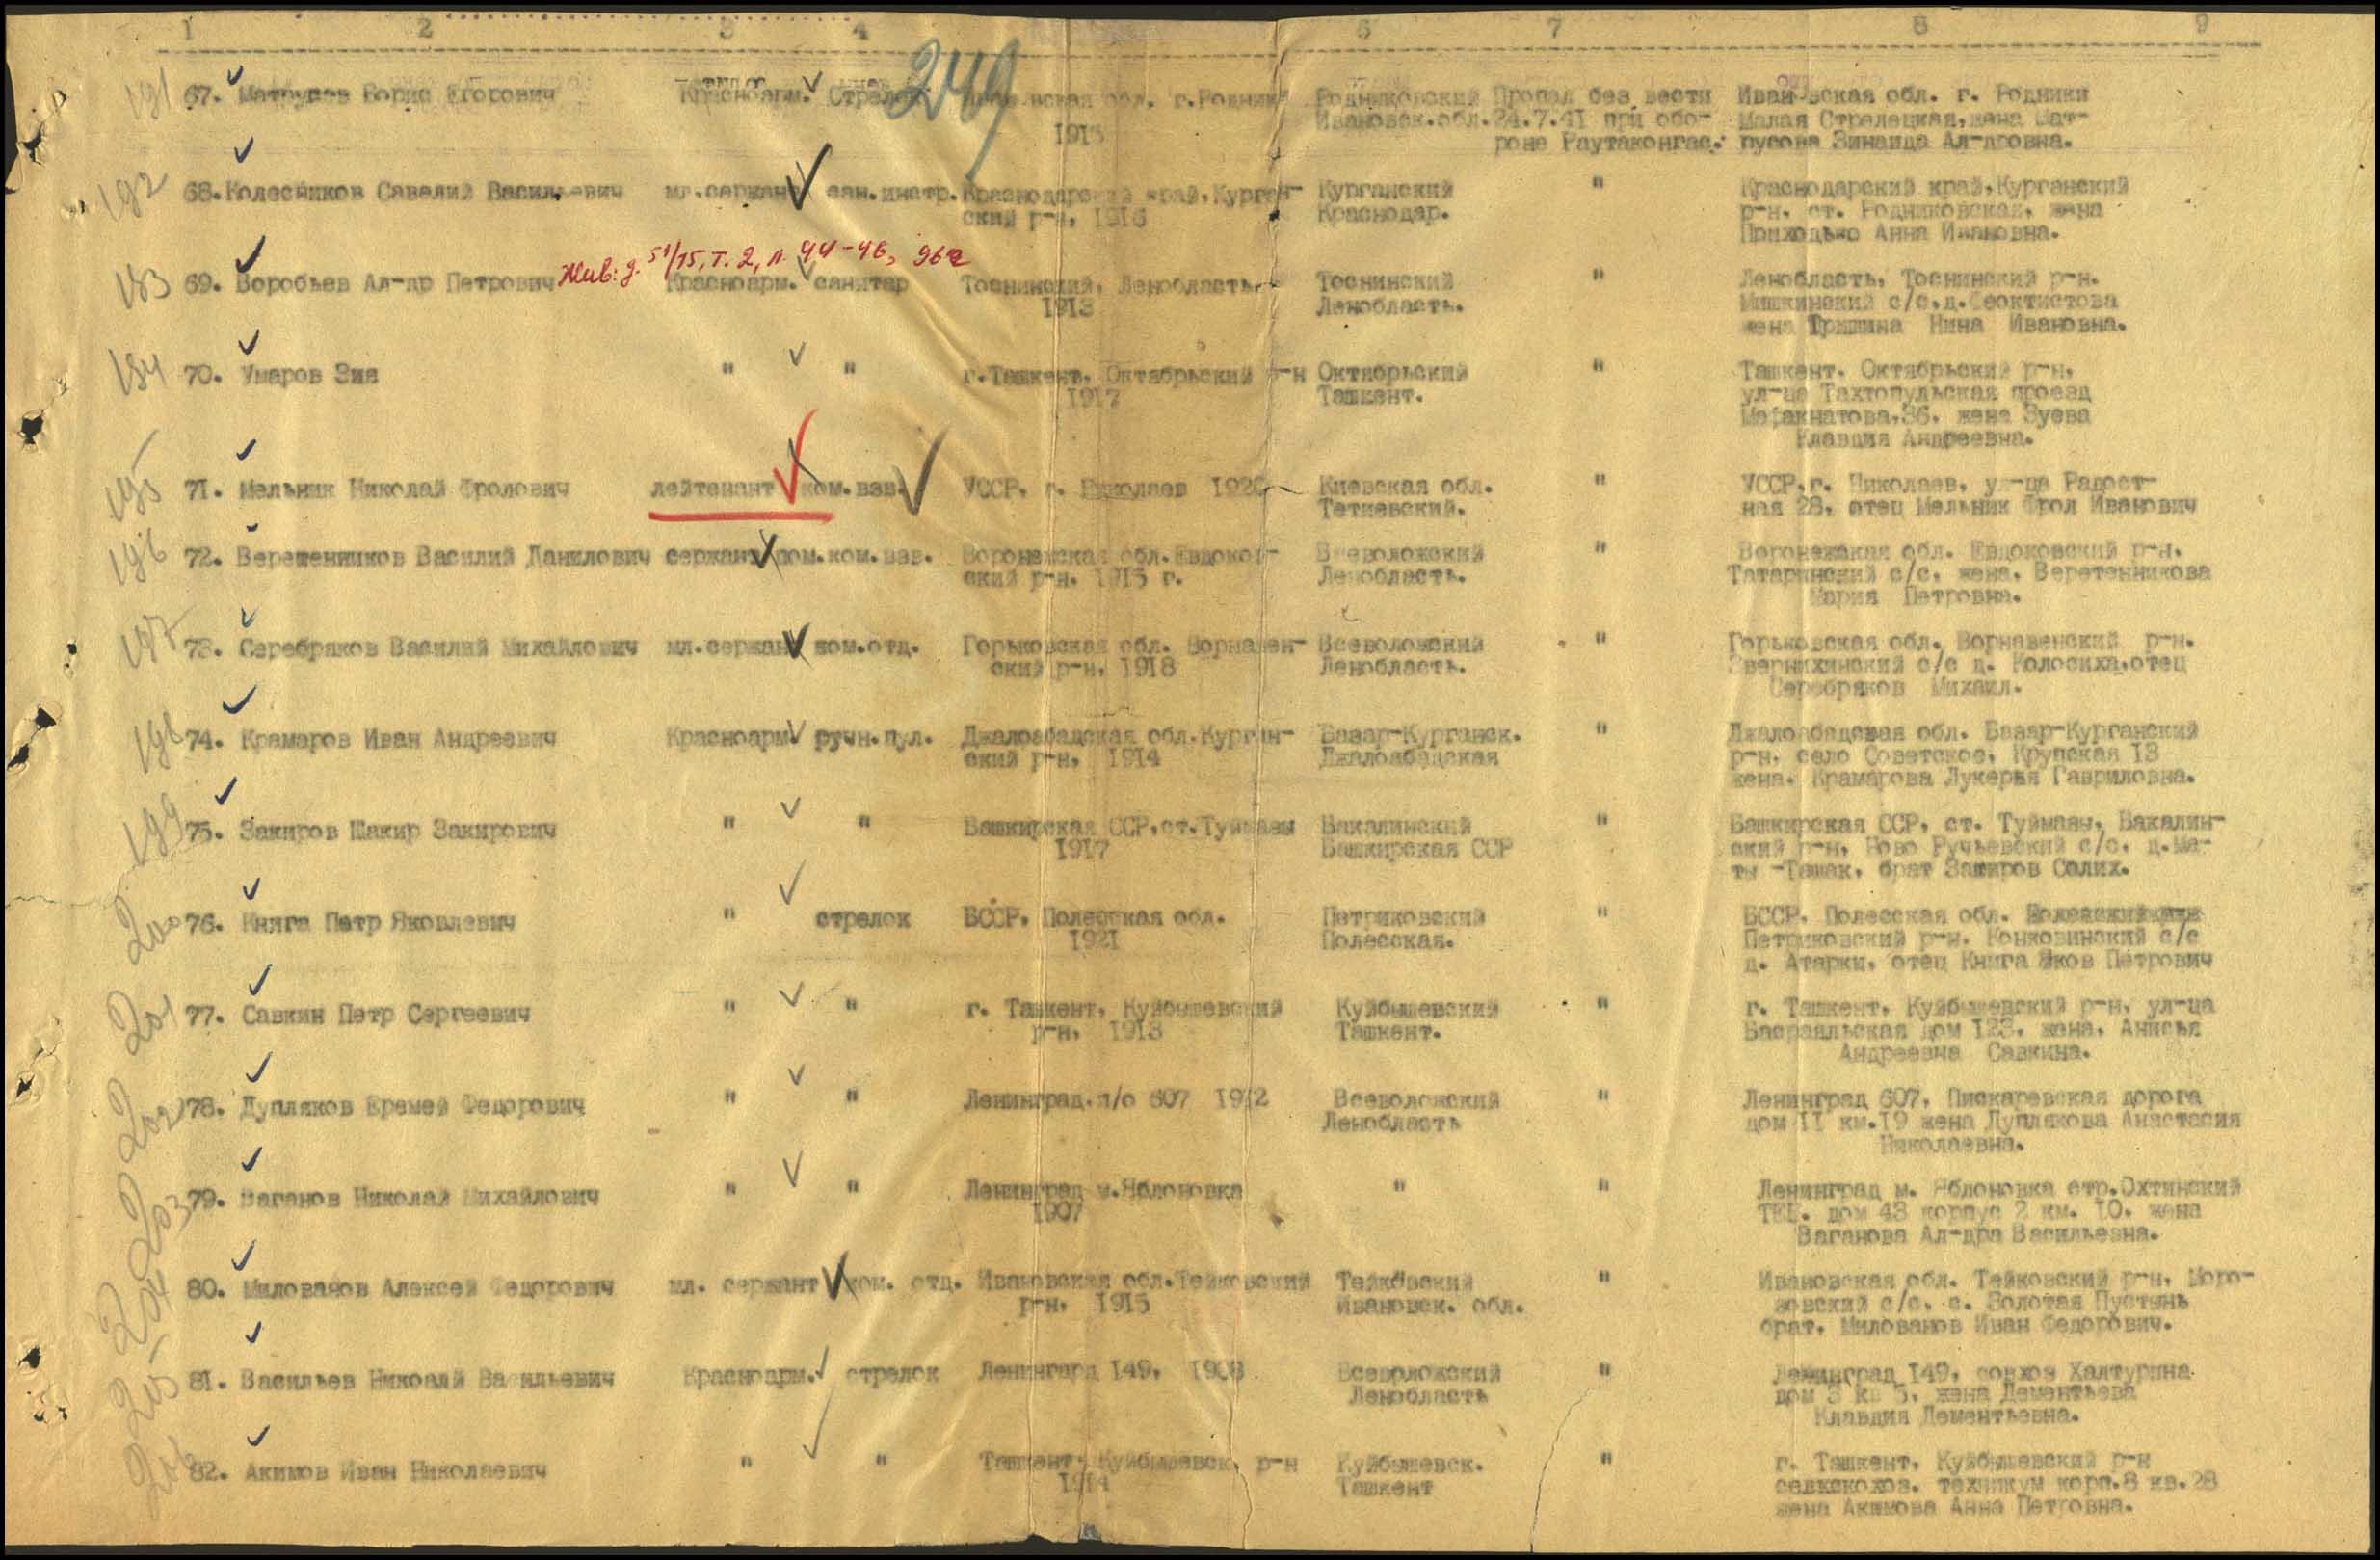 1 2 3 4 6 7 8 9
249
191 67. Матрусов Борис Егорович Красноарм. Стрелок обл. г.Родники Родниковский Пропал без вести Ивановская обл. г. Родники
1915 Ивановск.обл. 24.7.41 при обо- Малая Стрелецкая, жена Мат-
роне Раутаконгас. русова Зинаида Ал-дровна.
192 68. Колесников Савелий Васильевич мл.сержант сан.инстр. Краснодарский край, Курган- Курганский " Краснодарский край, Курганский
ский р-н, 1916 Краснодар. р-н. ст. Родниковская, жена
Приходько Анна Ивановна.
Жив: д. 51/15, т. 2, л. 44-46, 96
193 69. Воробьев Ал-др Петрович Красноарм. санитар Тоснинский, Ленобласть, Тоснинский " Ленобласть, Тоснинский р-н.
1913 Ленобласть. Мишкинский с/с.д.Феоктистова
жена Тришина Нина Ивановна.
194 70. Умаров Зия " " г.Ташкент, Октябрьский р-н Октябрьский " Ташкент. Октябрьский р-н.
1917 Ташкент. ул-ца Тахтопульская проезд
36. жена Зуева
Клавдия Андреевна.
195 71. Мельник Николай Фролович лейтенант ком.взв. УССР, г. Николаев 1920 Киевская обл. " УССР.г. Николаев, ул-ца Радост-
Тетиевский. ная 28, отец Мельник Фрол Иванович
196 72. Веретенников Василий Данилович сержант пом.ком.взв. Воронежская обл. Евдоков- Всеволожский " Воронежская обл. Евдоковский р-н.
ский р-н. 1915 г. Ленобласть. Татаринский с/с, жена, Веретенникова
Мария Петровна.
197 73. Серебряков Василий Михайлович мл.сержант ком.отд. Горьковская обл. Ворнавен- Всеволожский " Горьковская обл, Ворнавенский р-н.
ский р-н, 1918 Ленобласть. Звернихинский с/с д. Колосиха.отец
Серебряков Михаил.
198 74. Крамаров Иван Андреевич Красноарм ручн.пул. Джалоабадская обл.Курган- Базар-Курганск. " Джалоабадская обл. Базар-Курганский
ский р-н, 1914 Джалоабадская р-н. село Советское, Крупская 13
жена. Крамарова Лукерья Гавриловна.
199 75. Закиров Шакир Закирович " " Башкирская ССР.ст.Туймазы Бакалинский " Башкирская ССР, ст. Туймазы, Бакалин-
1917 Башкирская ССР ский р-н, Ново Ручьевский с/с. д.Ма-
ты -Ташак, брат Закиров Салих.
200 76. Книга Петр Яковлевич " стрелок БССР, Полесская обл. Петриковский " БССР. Полесская обл.
1921 Полесская. Петриковский р-н. Конковинский с/с
д. Атарки, отец Книга Яков Петрович
201 77. Савкин Петр Сергеевич " " г. Ташкент, Куйбышевский Куйбышевский " г. Ташкент, Куйбышевский р-н, ул-ца
р-н, 1913 Ташкент. дом 123. жена. Анисья
Андреевна Савкина.
202 78. Дупляков Еремей Федорович " " Ленинград.п/о 607 1912 Всеволожский " Ленинград 607, Пискаревская дорога
Ленобласть дом 11 кв.19 жена Дуплякова Анастасия
Николаевна.
203 79. Ваганов Николай Михайлович " " Ленинград м.Яблоновка " " Ленинград м. Яблоновка стр.Охтинский
1907 дом 43 корпус 2 км. 10. жена
Ваганова Ал-дра Васильевна.
204 80. Милованов Алексей Федорович мл. сержант ком. отд. Ивановская обл.Тейковский Тейковский " Ивановская обл. Тейковский р-н, Моро-
р-н. 1915 Ивановск. обл. зовский с/с. с. Золотая Пустынь
брат. Милованов Иван Федорович.
205 81. Васильев Николай Васильевич Красноарм. стрелок Ленинград 149, 1908 Всеволожский " Ленинград 149, совхоз Халтурина
Ленобласть дом 3 кв 5, жена Дементьева
Клавдия Дементьевна.
206 82. Акимов Иван Николаевич " " Ташкент, Куйбышевск. р-н Куйбышевск. " г. Ташкент, Куйбышевский р-н
1914 Ташкент сельскохоз. техникум корп.8 кв.28
жена Акимова Анна Петровна.